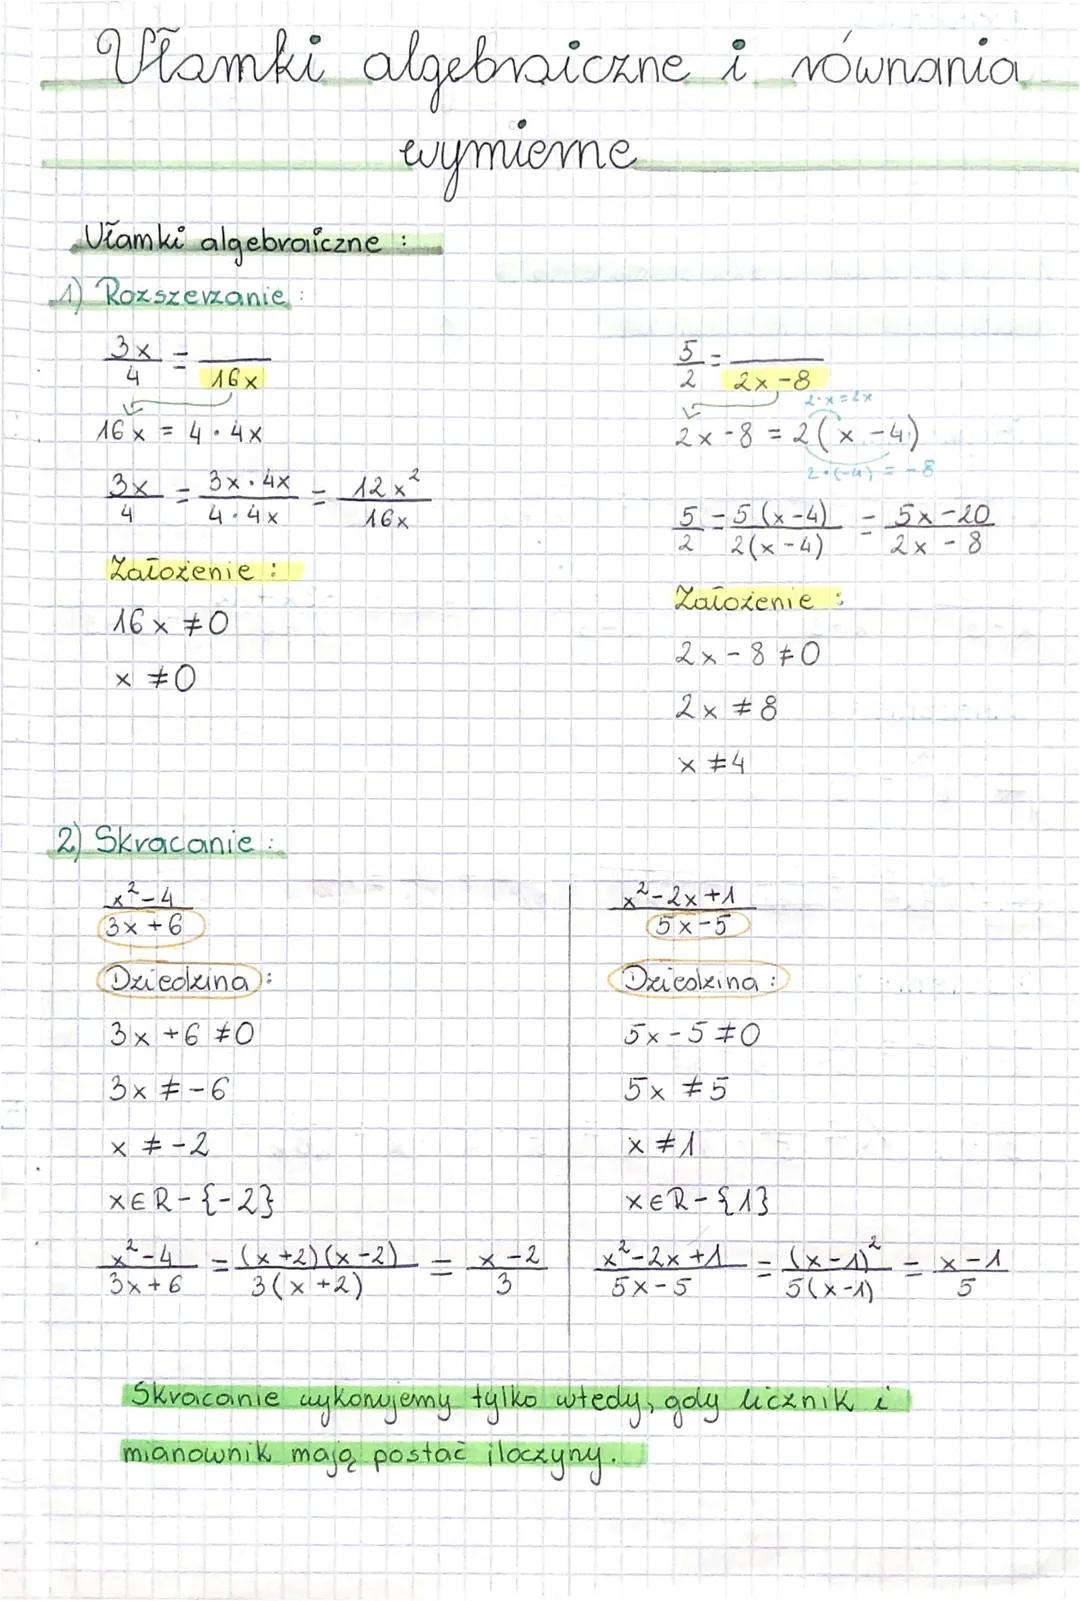 Ułamki algebraiczne i równania
wymierne
Ułamki algebraiczne :
1) Rozszerzanie :
3x/4 = /16x
16x = 4 · 4x
3x/4 = 3x · 4x/4 · 4x = 12x²/16x
Założenie :
16x ≠ 0
x ≠ 0
5/2 = /2x - 8
2·x = 2x
2x - 8 = 2(x - 4)
2·(-4) = -8
5/2 = 5(x-4)/2(x-4) = 5x - 20/2x - 8
Założenie :
2x - 8 ≠ 0
2x ≠ 8
x ≠ 4
2) Skracanie :
x² - 4/3x + 6
Dziedzina :
3x + 6 ≠ 0
3x ≠ -6
x ≠ -2
x∈R - {-2}
x² - 4/3x + 6 = (x+2)(x-2)/3(x+2) = x - 2/3
x² - 2x + 1/5x - 5
Dziedzina :
5x - 5 ≠ 0
5x ≠ 5
x ≠ 1
x∈R - {1}
x² - 2x + 1/5x - 5 = (x-1)²/5(x-1) = x - 1/5
Skracanie wykonujemy tylko wtedy, gdy licznik i
mianownik mają postać iloczyny.